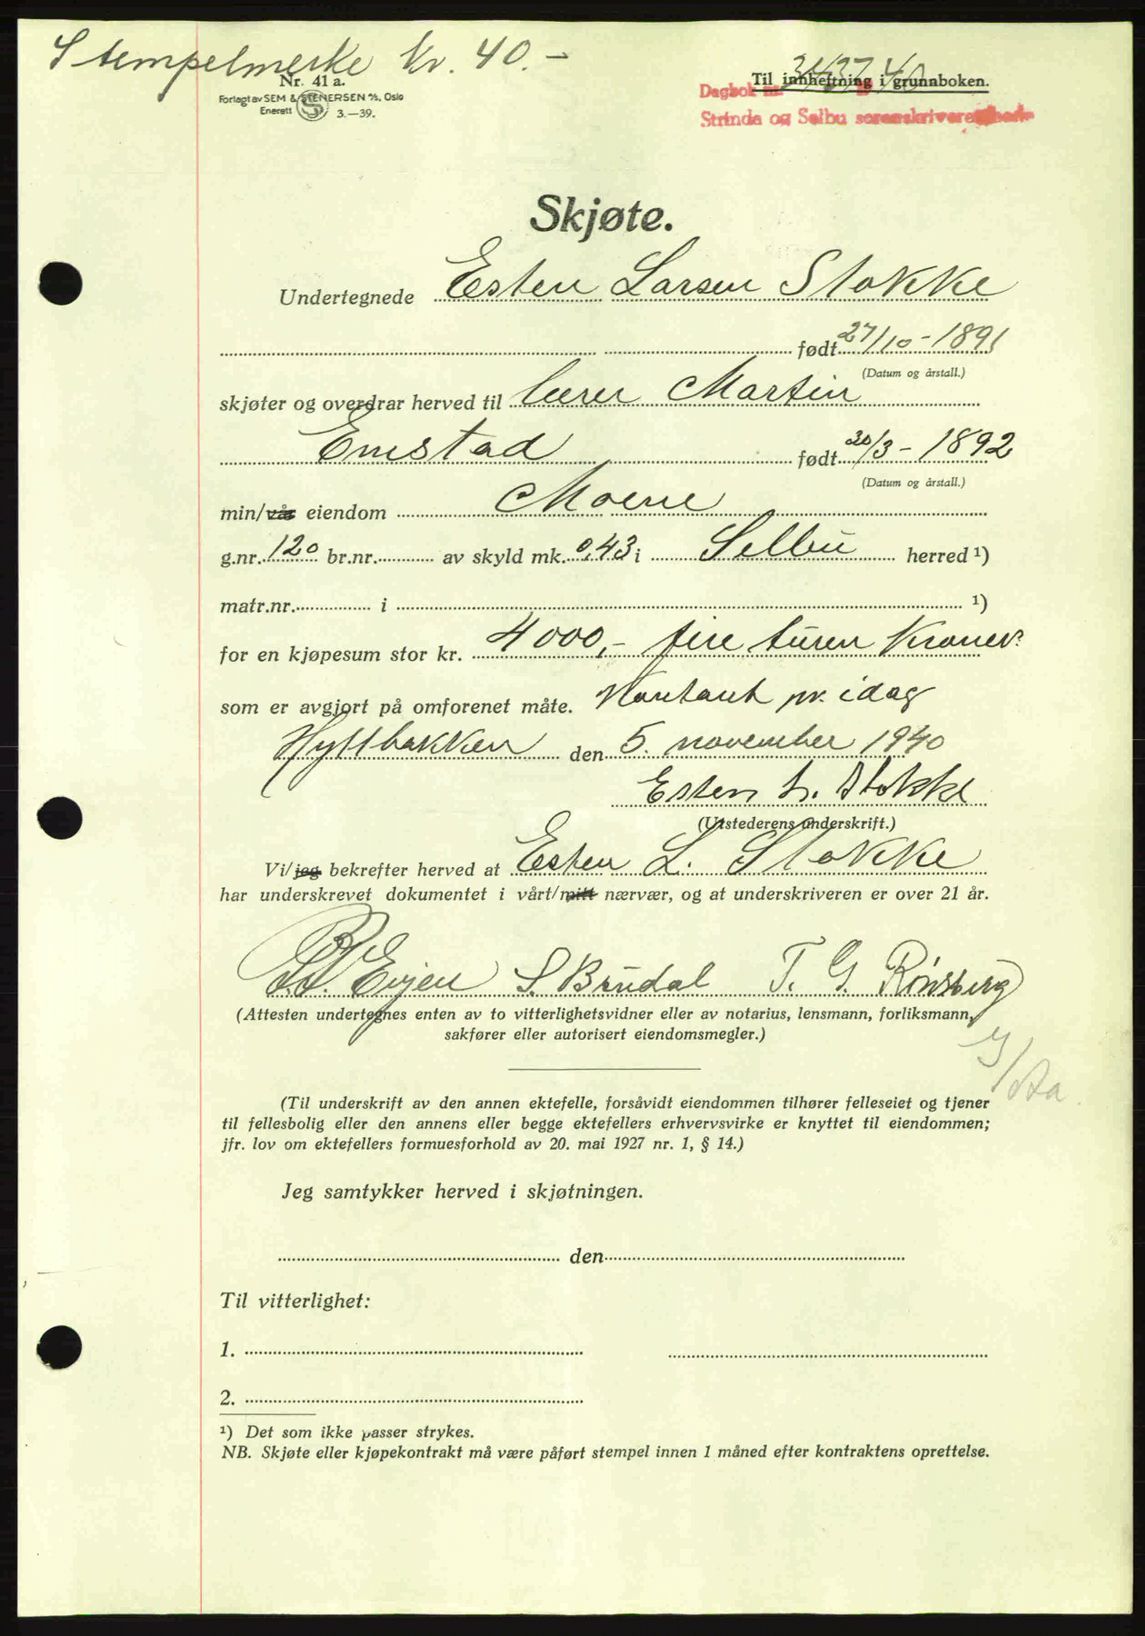 Stempelmerke kr. 40.-
Nr. 41 a.
Forlagt av SEM & STENERSEN A/S, Oslo
Enerett S 3.—39.
Til innheftning i grunnboken.
Dagbok nr.
Strinda og Selbu sorenskriverembede
Skjøte.
Undertegnede Esten Larsen Stokke
født 27/10 - 1891
(Datum og årstall.)
skjøter og overdrar herved til lærer Martin
Emstad født 20/3 - 1892
(Datum og årstall.)
min/vår eiendom Moene
g.nr. 120 br.nr. av skyld mk. 0,43 i Selbu herred ¹)
matr.nr. i ¹)
for en kjøpesum stor kr. 4000,- fire tusen Kroner
som er avgjort på omforenet måte. Kontant pr. idag
Hyttbakken den 5. november 1940
Esten L. Stokke
(Utstederens underskrift.)
Vi/jeg bekrefter herved at Esten L. Stokke
har underskrevet dokumentet i vårt/mitt nærvær, og at underskriveren er over 21 år.
Evjen S. Brudal T. G. Rønsberg
(Attesten undertegnes enten av to vitterlighetsvidner eller av notarius, lensmann, forliksmann,
sakfører eller autorisert eiendomsmegler.)
(Til underskrift av den annen ektefelle, forsåvidt eiendommen tilhører felleseiet og tjener
til fellesbolig eller den annens eller begge ektefellers erhvervsvirke er knyttet til eiendommen;
jfr. lov om ektefellers formuesforhold av 20. mai 1927 nr. 1, § 14.)
Jeg samtykker herved i skjøtningen.
den
Til vitterlighet:
1.
2.
¹) Det som ikke passer strykes.
NB. Skjøte eller kjøpekontrakt må være påført stempel innen 1 måned efter kontraktens oprettelse.